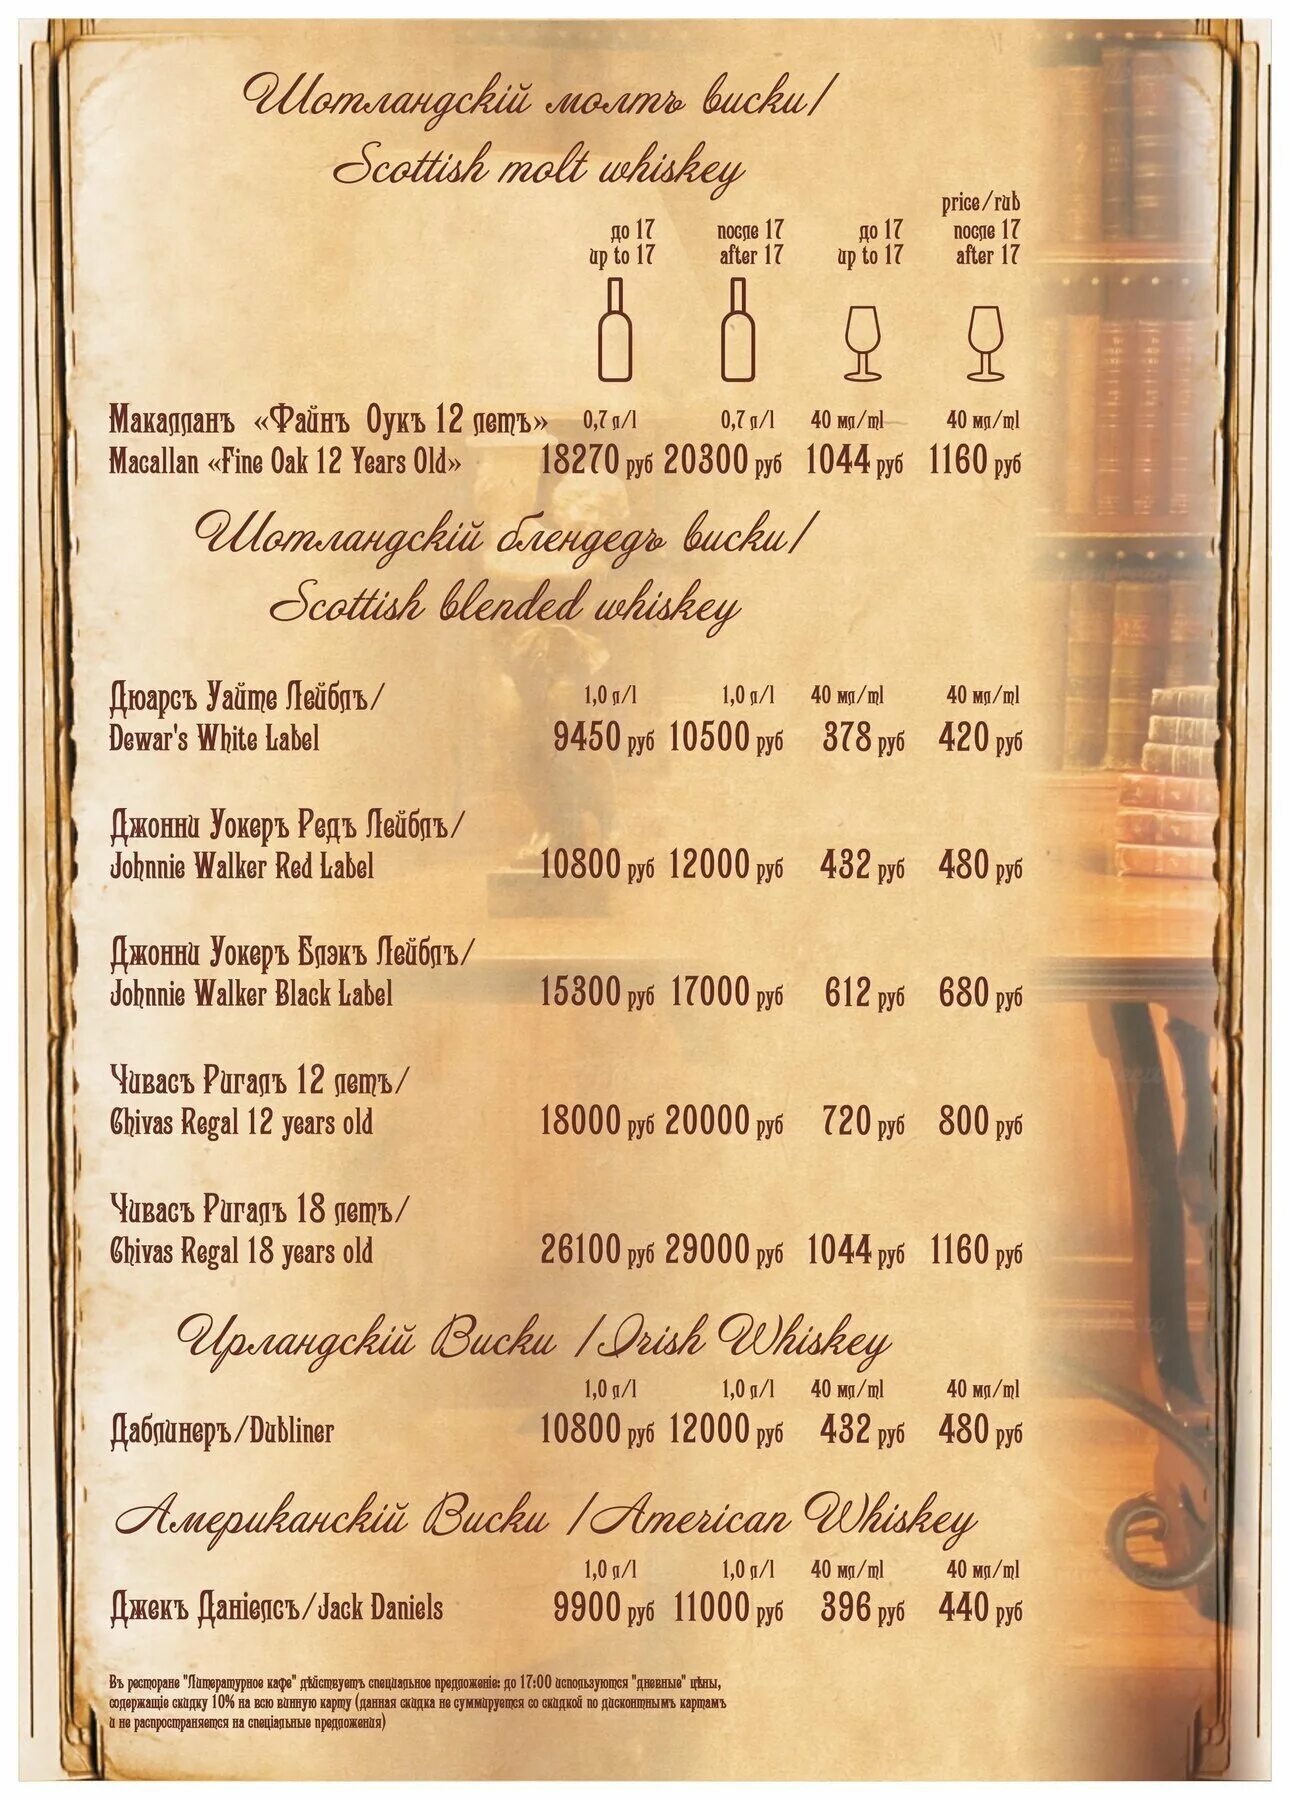 Шотландскій молтъ виски/
Scottish molt whiskey
price/rub
до 17 после 17 до 17 после 17
up to 17 after 17 up to 17 after 17
Макалланъ «Файнъ Оукъ 12 летъ» 0,7 л/l 0,7 л/l 40 мл/ml 40 мл/ml
Macallan «Fine Oak 12 Years Old» 18270 руб 20300 руб 1044 руб 1160 руб
Шотландскій блендедъ виски/
Scottish blended whiskey
Дюарсъ Уайте Лейблъ/ 1,0 л/l 1,0 л/l 40 мл/ml 40 мл/ml
Dewar's White Label 9450 руб 10500 руб 378 руб 420 руб
Джонни Уокеръ Редъ Лейблъ/
Johnnie Walker Red Label 10800 руб 12000 руб 432 руб 480 руб
Джонни Уокеръ Блэкъ Лейблъ/
Johnnie Walker Black Label 15300 руб 17000 руб 612 руб 680 руб
Чивасъ Ригалъ 12 летъ/
Chivas Regal 12 years old 18000 руб 20000 руб 720 руб 800 руб
Чивасъ Ригалъ 18 летъ/
Chivas Regal 18 years old 26100 руб 29000 руб 1044 руб 1160 руб
Ирландскій Виски /Irish Whiskey
1,0 л/l 1,0 л/l 40 мл/ml 40 мл/ml
Даблинеръ/Dubliner 10800 руб 12000 руб 432 руб 480 руб
Американскій Виски /American Whiskey
1,0 л/l 1,0 л/l 40 мл/ml 40 мл/ml
Джекъ Даніелсъ/Jack Daniels 9900 руб 11000 руб 396 руб 440 руб
Въ ресторане "Литературное кафе" дѣйствуетъ специальное предложеніе: до 17:00 используются "дневные" цѣны,
содержащіе скидку 10% на всю винную карту (данная скидка не суммируется со скидкой по дисконтнымъ картамъ
и не распространяется на спеціальные предложения)